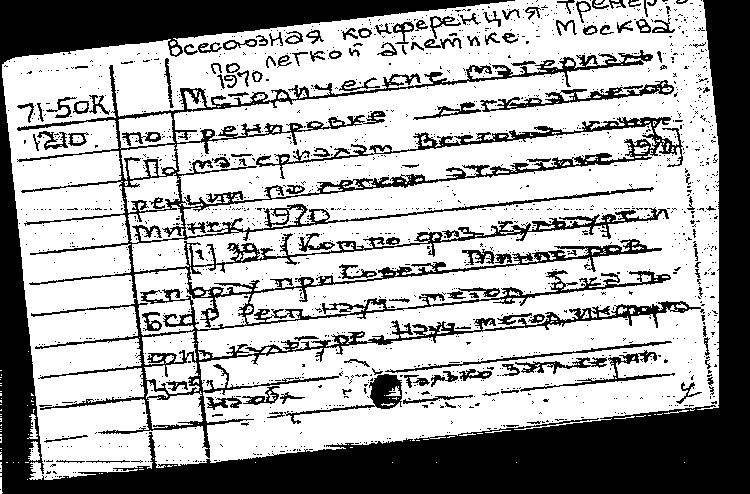 Всесоюзная конференция тренеров
по легкой атлетике. Москва.
1970.
71-50К
1210.
Методические материалы
по тренировке легкоатлетов
[По материалам Всесоюз. конфе-
ренции по легкой атлетике 1970г]
Минск, 1970
[1], 39с (Ком. по физ. культуре и
спорту при Совете Министров
БССР. Респ. науч.-метод. б-ка по
физ. культуре. Науч. метод. информа-
ция)
На обл. только загл. серии.